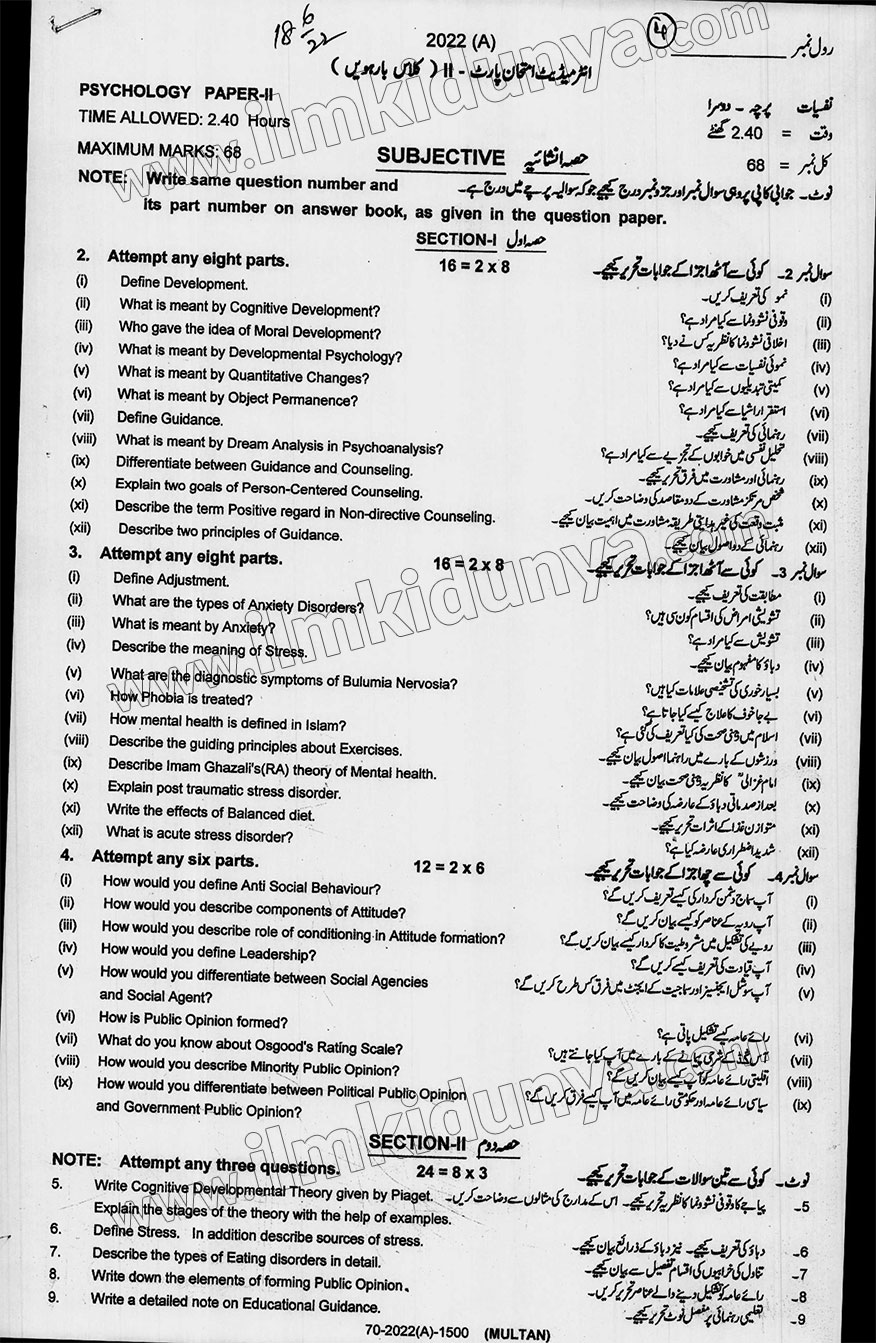 18 6/22
2022 (A)
4
رول نمبر
انٹرمیڈیٹ امتحان پارٹ - II ( کلاس بارہویں )
PSYCHOLOGY PAPER-II
نفسیات پرچہ - دوسرا
TIME ALLOWED: 2.40 Hours
وقت = 2.40 گھنٹے
MAXIMUM MARKS: 68
SUBJECTIVE حصہ انشائیہ
کل نمبر = 68
NOTE: Write same question number and
نوٹ - جوابی کاپی پر وہی سوال نمبر اور جزو نمبر درج کیجیے جو کہ سوالیہ پرچے میں درج ہے۔
its part number on answer book, as given in the question paper.
SECTION-I حصہ اول
2. Attempt any eight parts. 16 = 2 x 8 سوال نمبر 2۔ کوئی سے آٹھ اجزا کے جوابات تحریر کیجیے۔
(i) Define Development. نمو کی تعریف کریں۔ (i)
(ii) What is meant by Cognitive Development? وقوفی نشوونما سے کیا مراد ہے؟ (ii)
(iii) Who gave the idea of Moral Development? اخلاقی نشوونما کا نظریہ کس نے دیا؟ (iii)
(iv) What is meant by Developmental Psychology? نموئی نفسیات سے کیا مراد ہے؟ (iv)
(v) What is meant by Quantitative Changes? کمیتی تبدیلیوں سے کیا مراد ہے؟ (v)
(vi) What is meant by Object Permanence? استقرار اشیا سے کیا مراد ہے؟ (vi)
(vii) Define Guidance. رہنمائی کی تعریف کیجیے۔ (vii)
(viii) What is meant by Dream Analysis in Psychoanalysis? تحلیل نفسی میں خوابوں کے تجزیے سے کیا مراد ہے؟ (viii)
(ix) Differentiate between Guidance and Counseling. رہنمائی اور مشاورت میں فرق تحریر کیجیے۔ (ix)
(x) Explain two goals of Person-Centered Counseling. شخص مرتکز مشاورت کے دو مقاصد کی وضاحت کریں۔ (x)
(xi) Describe the term Positive regard in Non-directive Counseling. مثبت وقعت کی غیر ہدایتی طریقہ مشاورت میں اہمیت بیان کیجیے۔ (xi)
(xii) Describe two principles of Guidance. رہنمائی کے دو اصول بیان کیجیے۔ (xii)
3. Attempt any eight parts. 16 = 2 x 8 سوال نمبر 3۔ کوئی سے آٹھ اجزا کے جوابات تحریر کیجیے۔
(i) Define Adjustment. مطابقت کی تعریف کیجیے۔ (i)
(ii) What are the types of Anxiety Disorders? تشویشی امراض کی اقسام کون سی ہیں؟ (ii)
(iii) What is meant by Anxiety? تشویش سے کیا مراد ہے؟ (iii)
(iv) Describe the meaning of Stress. دباؤ کا مفہوم بیان کیجیے۔ (iv)
(v) What are the diagnostic symptoms of Bulumia Nervosia? بسیار خوری کی تشخیصی علامات کیا ہیں؟ (v)
(vi) How Phobia is treated? بے جا خوف کا علاج کیسے کیا جاتا ہے؟ (vi)
(vii) How mental health is defined in Islam? اسلام میں ذہنی صحت کی کیا تعریف کی گئی ہے؟ (vii)
(viii) Describe the guiding principles about Exercises. ورزشوں کے بارے میں راہنما اصول بیان کیجیے۔ (viii)
(ix) Describe Imam Ghazali's(RA) theory of Mental health. امام غزالیؒ کا نظریہ ذہنی صحت بیان کیجیے۔ (ix)
(x) Explain post traumatic stress disorder. بعد از صدماتی دباؤ کے عارضہ کی وضاحت کیجیے۔ (x)
(xi) Write the effects of Balanced diet. متوازن غذا کے اثرات تحریر کیجیے۔ (xi)
(xii) What is acute stress disorder? شدید اضطراری عارضہ کیا ہے؟ (xii)
4. Attempt any six parts. 12 = 2 x 6 سوال نمبر 4۔ کوئی سے چھ اجزا کے جوابات تحریر کیجیے۔
(i) How would you define Anti Social Behaviour? آپ سماج دشمن کردار کی کیسے تعریف کریں گے؟ (i)
(ii) How would you describe components of Attitude? آپ رویہ کے عناصر کو کیسے بیان کریں گے؟ (ii)
(iii) How would you describe role of conditioning in Attitude formation? رویے کی تشکیل میں مشروطیت کا کردار کیسے بیان کریں گے؟ (iii)
(iv) How would you define Leadership? آپ قیادت کی تعریف کیسے کریں گے؟ (iv)
(v) How would you differentiate between Social Agencies آپ سوشل ایجنسیز اور سماجیت کے ایجنٹ میں فرق کس طرح کریں گے؟ (v)
and Social Agent?
(vi) How is Public Opinion formed? رائے عامہ کیسے تشکیل پاتی ہے؟ (vi)
(vii) What do you know about Osgood's Rating Scale? کے شرحی پیمانے کے بارے میں آپ کیا جانتے ہیں؟ (vii)
(viii) How would you describe Minority Public Opinion? اقلیتی رائے عامہ کو آپ کیسے بیان کریں گے؟ (viii)
(ix) How would you differentiate between Political Public Opinion سیاسی رائے عامہ اور حکومتی رائے عامہ میں آپ کیسے فرق کریں گے؟ (ix)
and Government Public Opinion?
SECTION-II حصہ دوم
NOTE: Attempt any three questions. 24 = 8 x 3 نوٹ - کوئی سے تین سوالات کے جوابات تحریر کیجیے۔
5. Write Cognitive Developmental Theory given by Piaget. پیاجے کا وقوفی نشوونما کا نظریہ تحریر کیجیے۔ اس کے مدارج کی مثالوں سے وضاحت کریں۔ -5
Explain the stages of the theory with the help of examples.
6. Define Stress. In addition describe sources of stress. دباؤ کی تعریف کیجیے۔ نیز دباؤ کے ذرائع بیان کیجیے۔ -6
7. Describe the types of Eating disorders in detail. تناول کی خرابیوں کی اقسام تفصیل سے بیان کیجیے۔ -7
8. Write down the elements of forming Public Opinion. رائے عامہ کو تشکیل دینے والے عناصر تحریر کریں۔ -8
9. Write a detailed note on Educational Guidance. تعلیمی رہنمائی پر مفصل نوٹ تحریر کیجیے۔ -9
70-2022(A)-1500 (MULTAN)
www.ilmkidunya.com
www.ilmkidunya.com
www.ilmkidunya.com